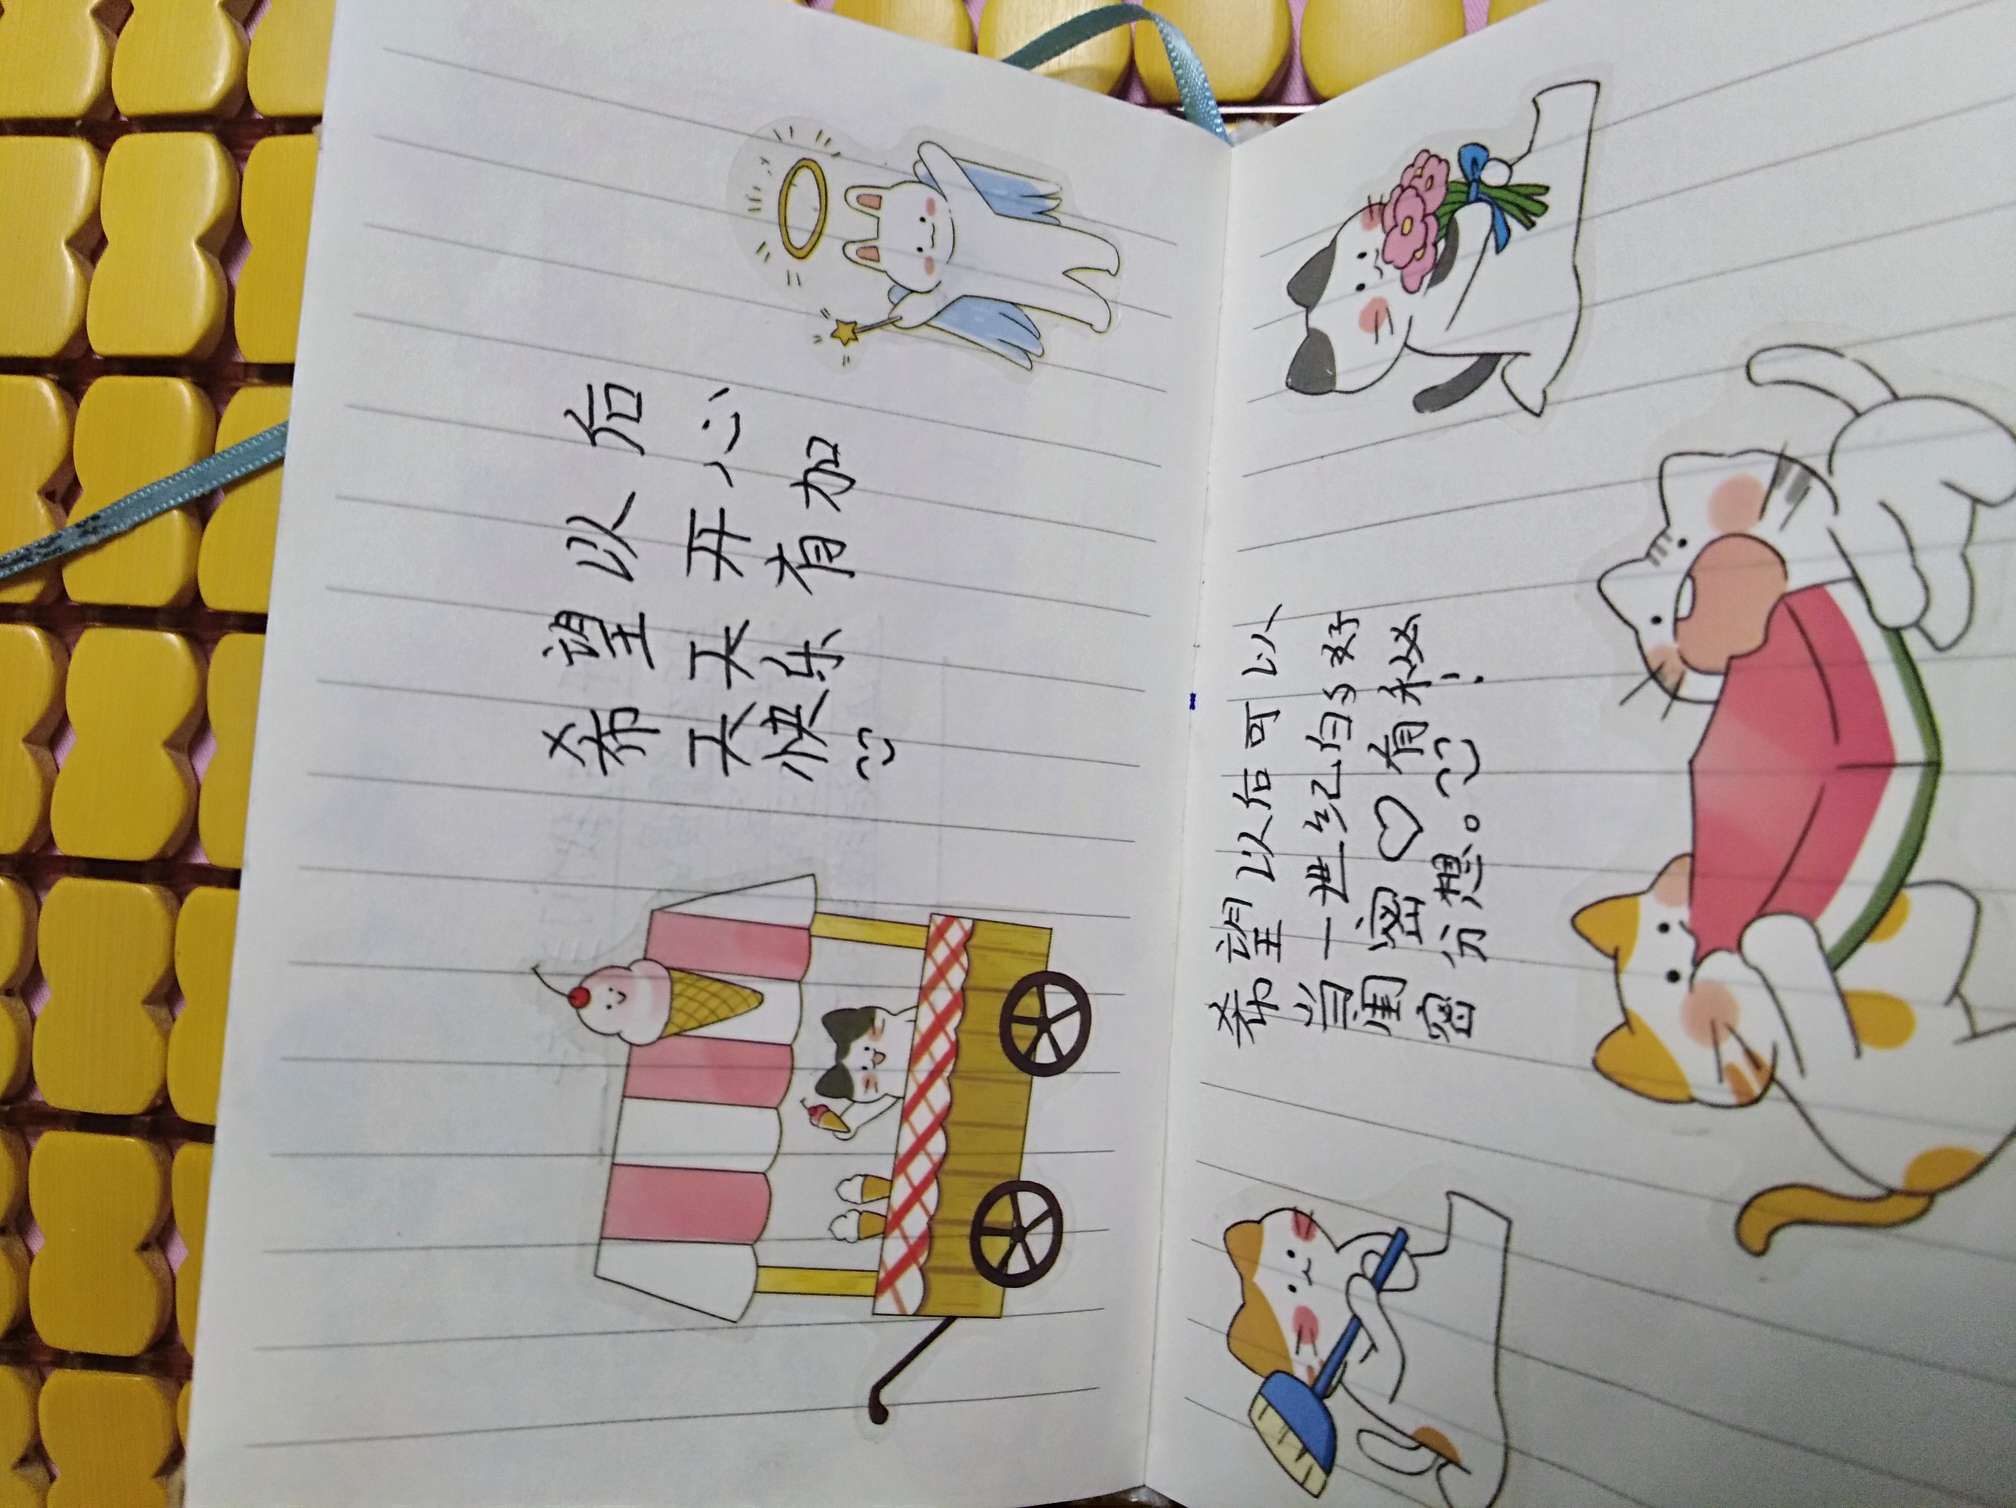 希望以后
天天开心
快乐有加
希望以后可以
当一世纪的好
闺密♡有秘
密分想。!